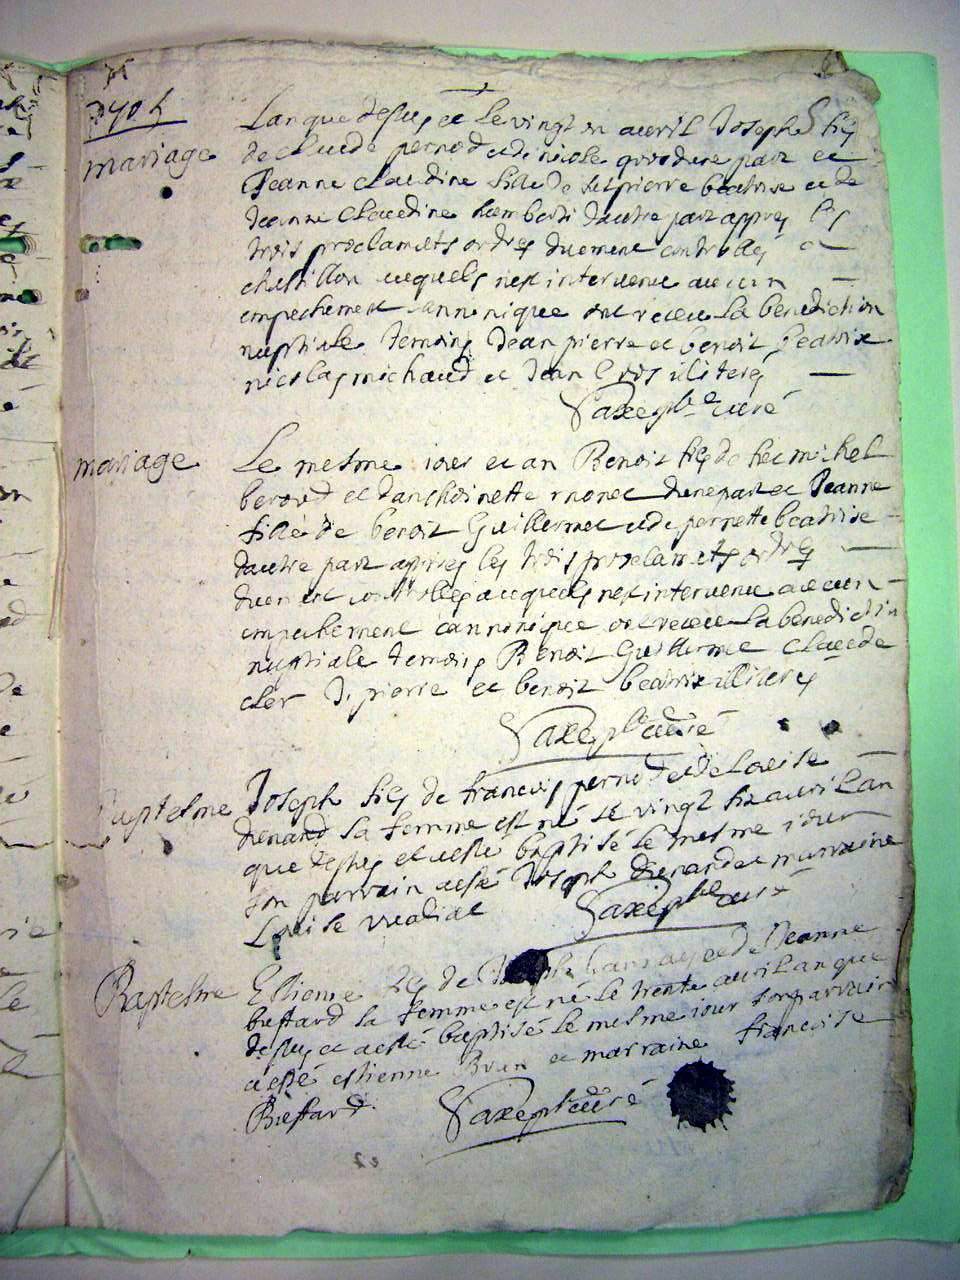 mariage
Lan que desus et le vingt un avril Joseph fils
de Claude pernod et de nicole part et
Jeanne Claudine fille de pierre beatrix et de
Jeanne Claudine humbert dautre part appres les
trois proclamats ordres duement controlles a
chastillon auquels nest intervenu aucun
empechement cannonique ont receu la benediction
nuptiale temoins Jean pierre et benoit beatrix
nicolas michaud et Jean illiteres
Saxe pbre curé
mariage
Le mesme iour et an Benoit fils de feu michel
beroud et danthoinette monet dunepart et Jeanne
fille de benoit Guillermet et de pernette beatrise
dautre part appres les trois proclamats ordres
duement controlles auquels nest intervenu aucun
empechement cannonique ont receu la benediction
nuptiale temoins Benoit Guillermet Claude
cler Jj pierre et benoit beatrix illiteres
Saxe pbre curé
Baptesme
Joseph fils de francois pernod et de Louise
Junand sa femme est né le vingt six avril Lan
que desus et a esté baptisé le mesme iour
son parrain a esté Joseph et marraine
Louise
Saxe pbre curé
Baptesme
Estienne fils de Joseph et de Jeanne
bustard sa femme est né le trente avril Lan que
desus et a esté baptisé le mesme iour son parrain
a esté estienne Brun et marraine francoise
Bustard
Saxe pbre curé